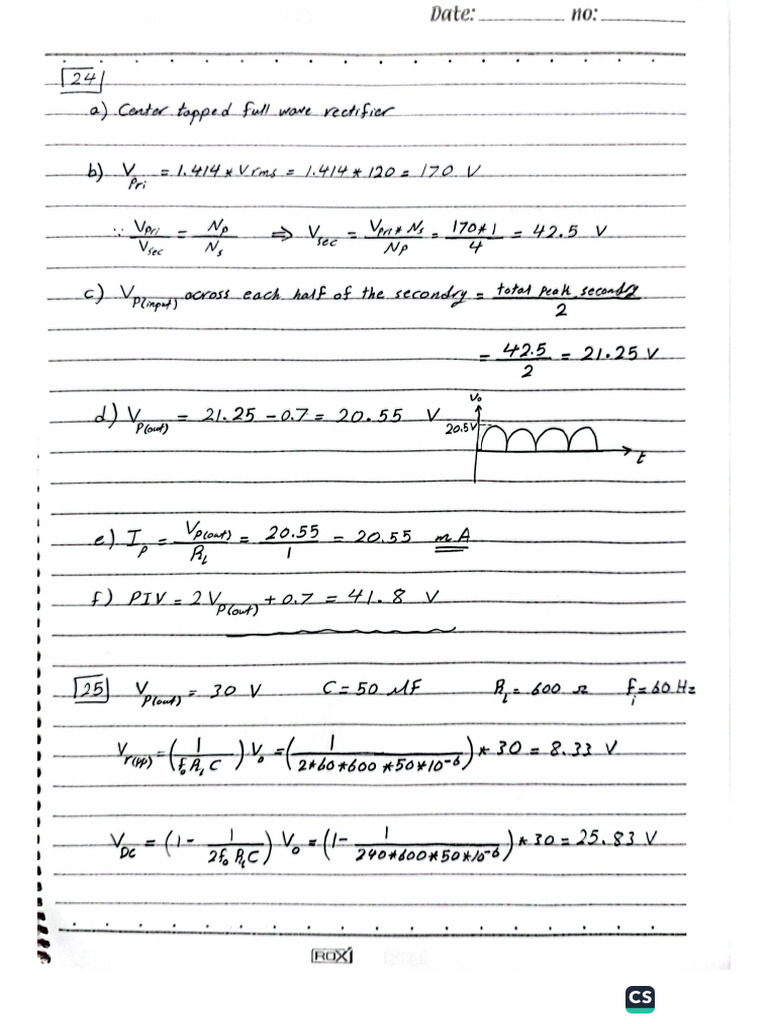 Date: no:
24
a) Center tapped full wave rectifier
b) V_Pri = 1.414 * Vrms = 1.414 * 120 = 170 V
∵ V_Pri / V_sec = N_P / N_s ⇒ V_sec = V_Pri * N_s / N_P = 170*1 / 4 = 42.5 V
c) V_P(input) across each half of the secondry = total peak secondry / 2
= 42.5 / 2 = 21.25 V
d) V_P(out) = 21.25 - 0.7 = 20.55 V
V_o
20.5V
t
e) I_P = V_P(out) / R_L = 20.55 / 1 = 20.55 mA
f) PIV = 2V_P(out) + 0.7 = 41.8 V
25 V_P(out) = 30 V C = 50 μF R_L = 600 Ω f_i = 60 Hz
V_r(PP) = (1 / f_o R_L C) V_o = (1 / 2*60*600*50*10^-6) * 30 = 8.33 V
V_DC = (1 - 1 / 2f_o R_L C) V_o = (1 - 1 / 240*600*50*10^-6) * 30 = 25.83 V
ROXI
CS